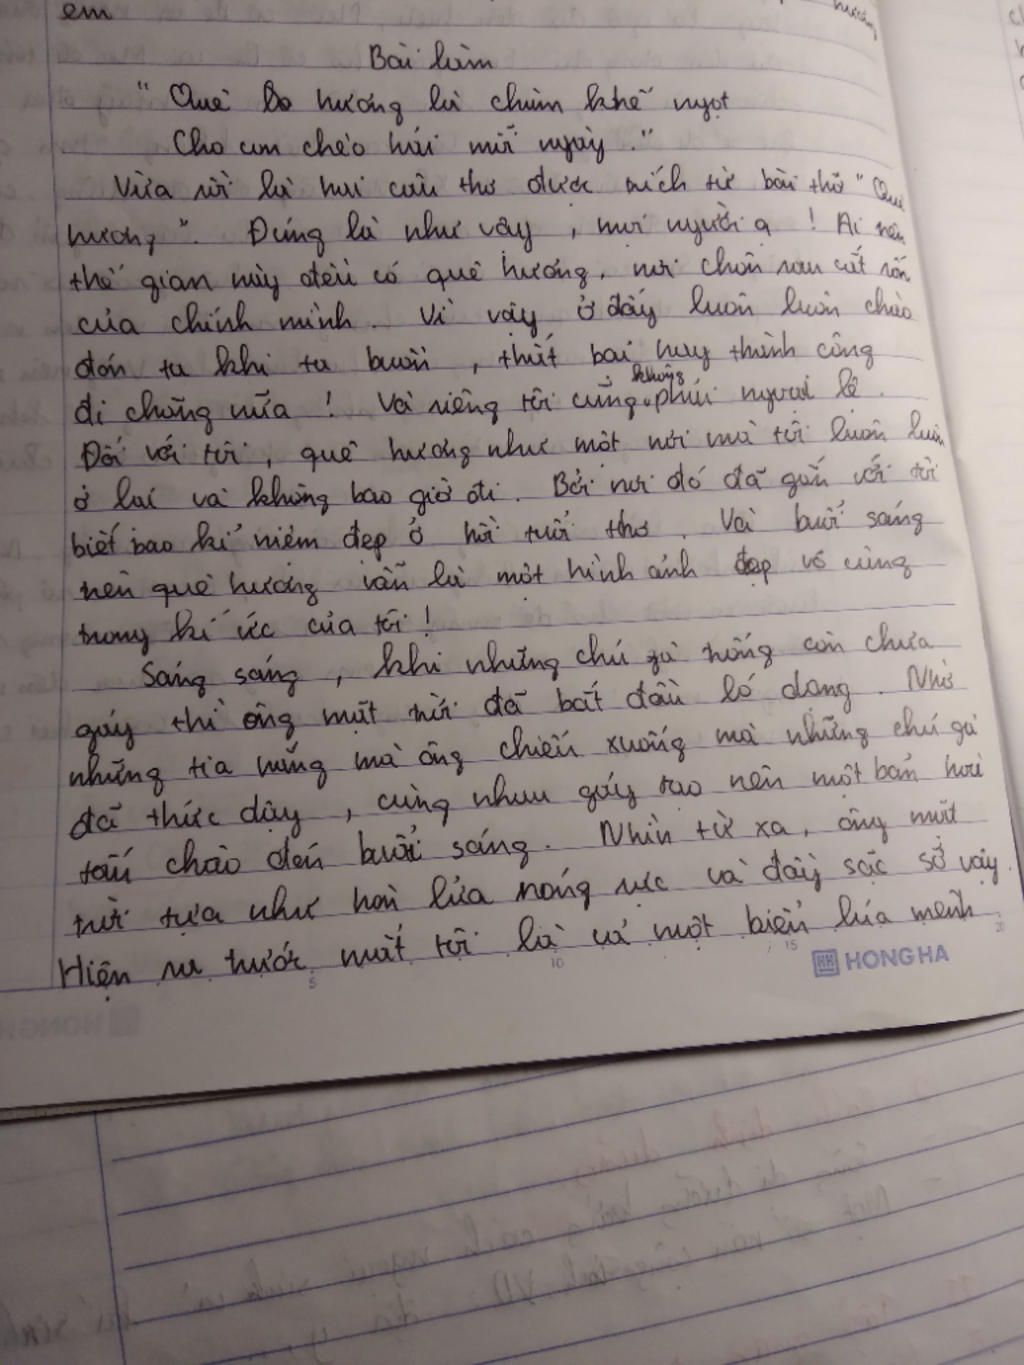 em
hương
Bài làm
" Quê hương là chùm khế ngọt
Cho em chèo hái mỗi ngày . "
Vừa rồi là hai câu thơ được trích từ bài thơ " Quê
hương " . Đúng là như vậy , mọi người ạ ! Ai trên
thế gian này đều có quê hương, nơi chôn rau cắt rốn
của chính mình . Vì vậy ở đấy luôn luôn chào
đón ta khi ta buồn , thất bại hay thành công
đi chăng nữa ! Và riêng tôi cũng không phải ngoại lệ .
Đối với tôi , quê hương như một nơi mà tôi luôn luôn
ở lại và không bao giờ đi . Bởi nơi đó đã gắn với tôi
biết bao kỉ niệm đẹp ở hồi tuổi thơ . Và buổi sáng
trên quê hương vẫn là một hình ảnh đẹp vô cùng
trong kí ức của tôi !
Sáng sáng , khi những chú gà trống còn chưa
gáy thì ông mặt trời đã bắt đầu ló dạng . Nhờ
những tia nắng mà ông chiếu xuống mà những chú gà
đã thức dậy , cùng nhau gáy tạo nên một bản hoà
tấu chào đón buổi sáng . Nhìn từ xa , ông mặt
trời tựa như hòn lửa nóng rực và đầy sặc sỡ vậy .
Hiện ra trước mắt tôi là cả một biển lúa mênh
5 10 15 20
HONG HA